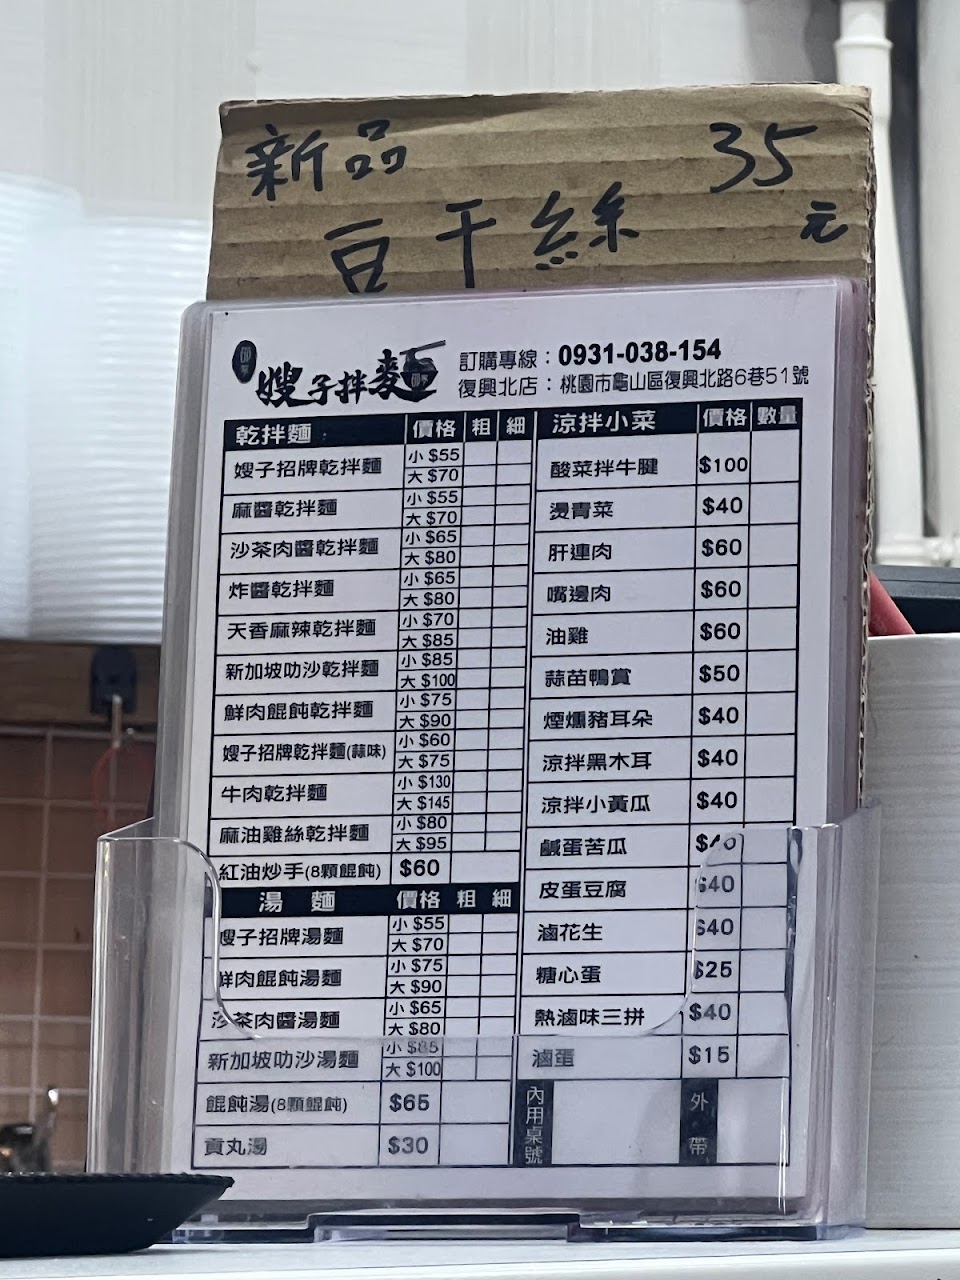 新品 35
豆干絲 元
嫂子拌麵
訂購專線：0931-038-154
復興北店：桃園市龜山區復興北路6巷51號
乾拌麵 價格 粗 細
嫂子招牌乾拌麵 小 $55
大 $70
麻醬乾拌麵 小 $55
大 $70
沙茶肉醬乾拌麵 小 $65
大 $80
炸醬乾拌麵 小 $65
大 $80
天香麻辣乾拌麵 小 $70
大 $85
新加坡叻沙乾拌麵 小 $85
大 $100
鮮肉餛飩乾拌麵 小 $75
大 $90
嫂子招牌乾拌麵(蒜味) 小 $60
大 $75
牛肉乾拌麵 小 $130
大 $145
麻油雞絲乾拌麵 小 $80
大 $95
紅油炒手(8顆餛飩) $60
湯麵 價格 粗 細
嫂子招牌湯麵 小 $55
大 $70
鮮肉餛飩湯麵 小 $75
大 $90
沙茶肉醬湯麵 小 $65
大 $80
新加坡叻沙湯麵 小 $85
大 $100
餛飩湯(8顆餛飩) $65
貢丸湯 $30
涼拌小菜 價格 數量
酸菜拌牛腱 $100
燙青菜 $40
肝連肉 $60
嘴邊肉 $60
油雞 $60
蒜苗鴨賞 $50
煙燻豬耳朵 $40
涼拌黑木耳 $40
涼拌小黃瓜 $40
鹹蛋苦瓜 $40
皮蛋豆腐 $40
滷花生 $40
糖心蛋 $25
熱滷味三拼 $40
滷蛋 $15
內用桌號 外帶